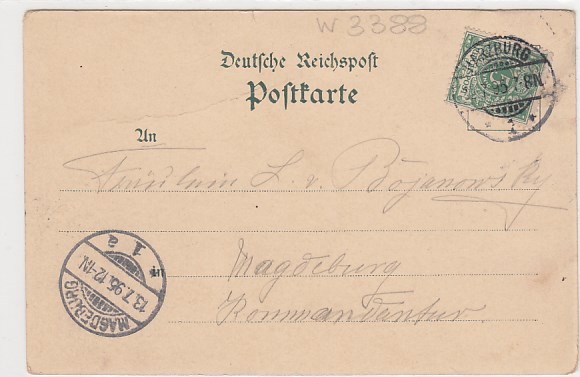 W 3388
Deutsche Reichspost
Postkarte
HARZBURG
7-8N.
An
Fräulein L. v. Bojanowsky
in
Magdeburg
Kommandantur
MAGDEBURG
13.7.96.12-1N.
1 a